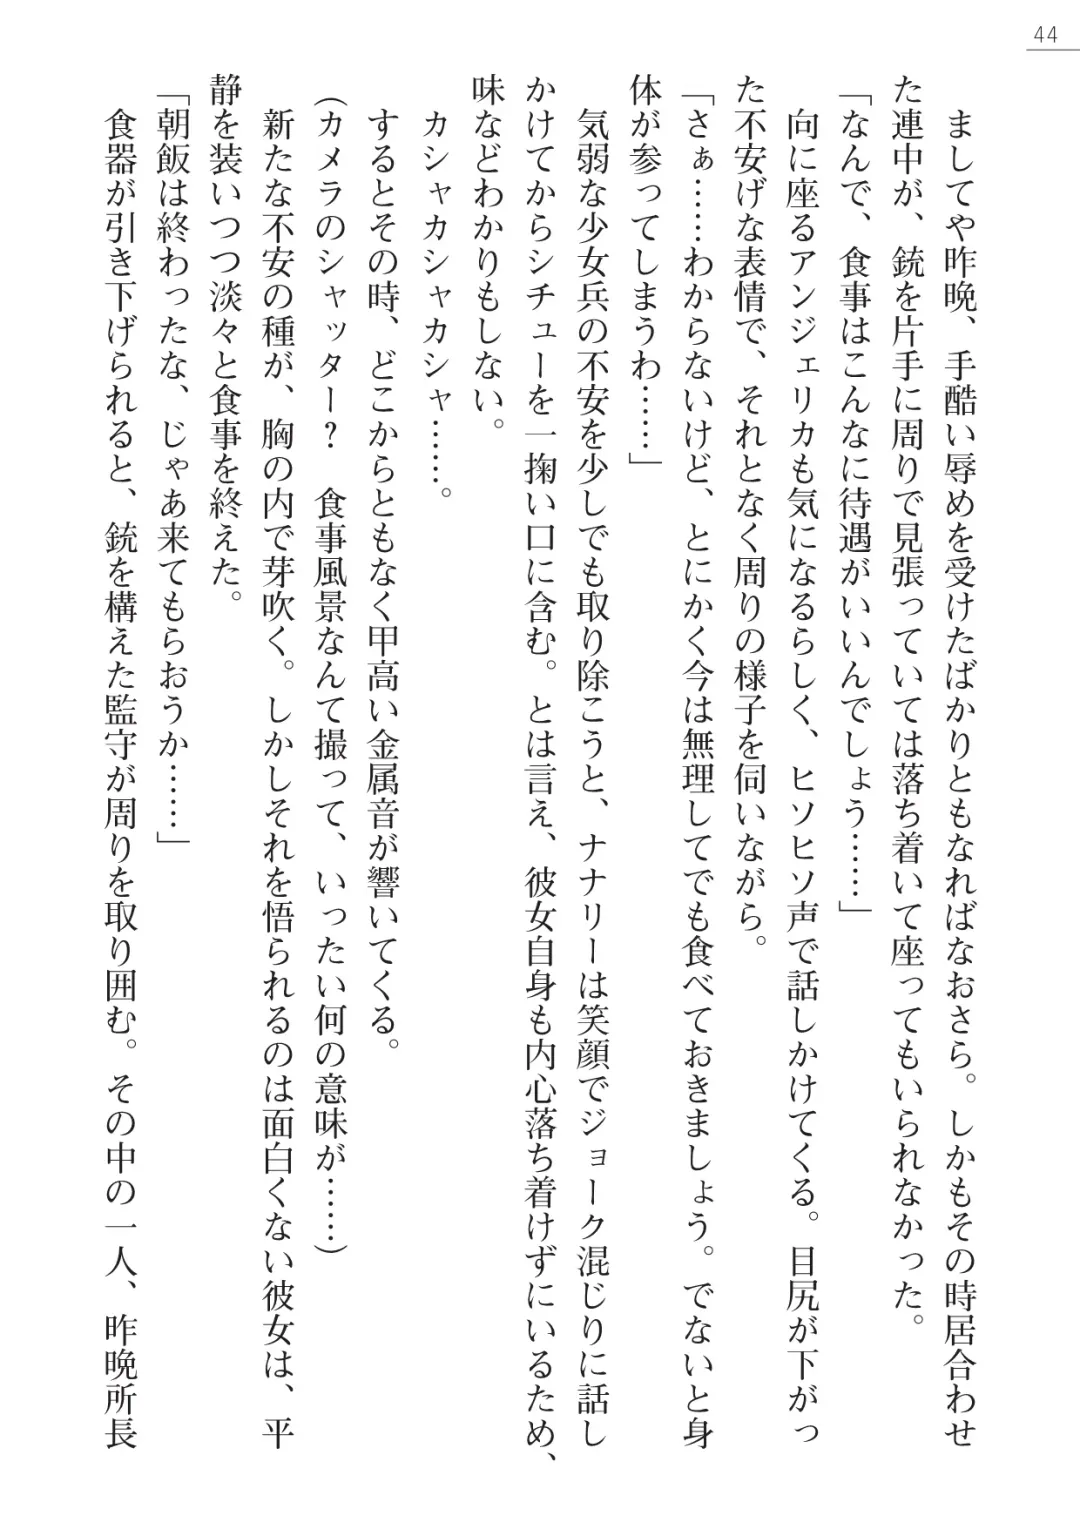 44
ましてや昨晩、手酷い辱めを受けたばかりともなればなおさら。しかもその時居合わせ
た連中が、銃を片手に周りで見張っていては落ち着いて座ってもいられなかった。
「なんで、食事はこんなに待遇がいいんでしょう……」
向に座るアンジェリカも気になるらしく、ヒソヒソ声で話しかけてくる。目尻が下がっ
た不安げな表情で、それとなく周りの様子を伺いながら。
「さぁ……わからないけど、とにかく今は無理してでも食べておきましょう。でないと身
体が参ってしまうわ……」
気弱な少女兵の不安を少しでも取り除こうと、ナナリーは笑顔でジョーク混じりに話し
かけてからシチューを一掬い口に含む。とは言え、彼女自身も内心落ち着けずにいるため、
味などわかりもしない。
カシャカシャカシャ……。
するとその時、どこからともなく甲高い金属音が響いてくる。
(カメラのシャッター？　食事風景なんて撮って、いったい何の意味が……)
新たな不安の種が、胸の内で芽吹く。しかしそれを悟られるのは面白くない彼女は、平
静を装いつつ淡々と食事を終えた。
「朝飯は終わったな、じゃあ来てもらおうか……」
食器が引き下げられると、銃を構えた監守が周りを取り囲む。その中の一人、昨晩所長